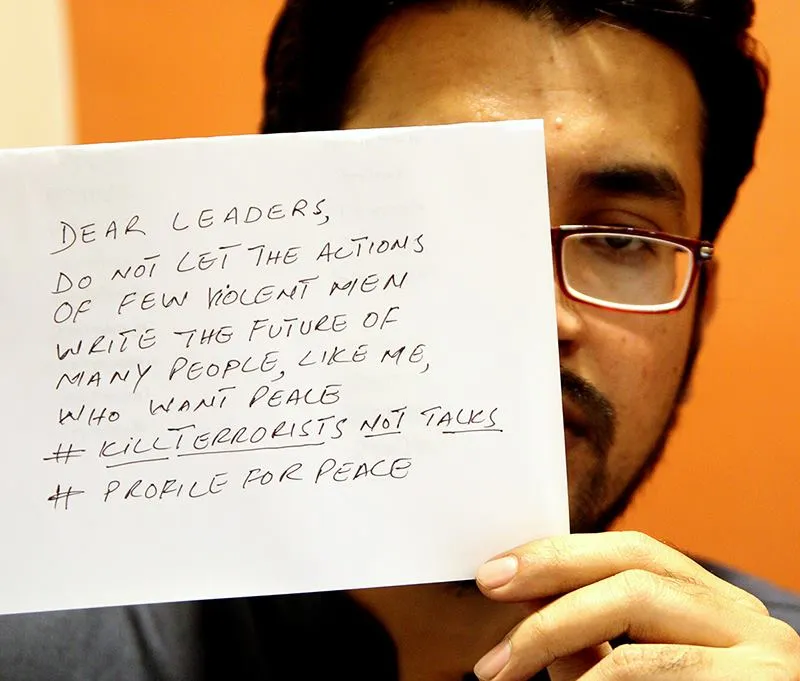 DEAR LEADERS,
DO NOT LET THE ACTIONS
OF FEW VIOLENT MEN
WRITE THE FUTURE OF
MANY PEOPLE, LIKE ME,
WHO WANT PEACE
# KILLTERRORISTS NOT TALKS
# PROFILE FOR PEACE